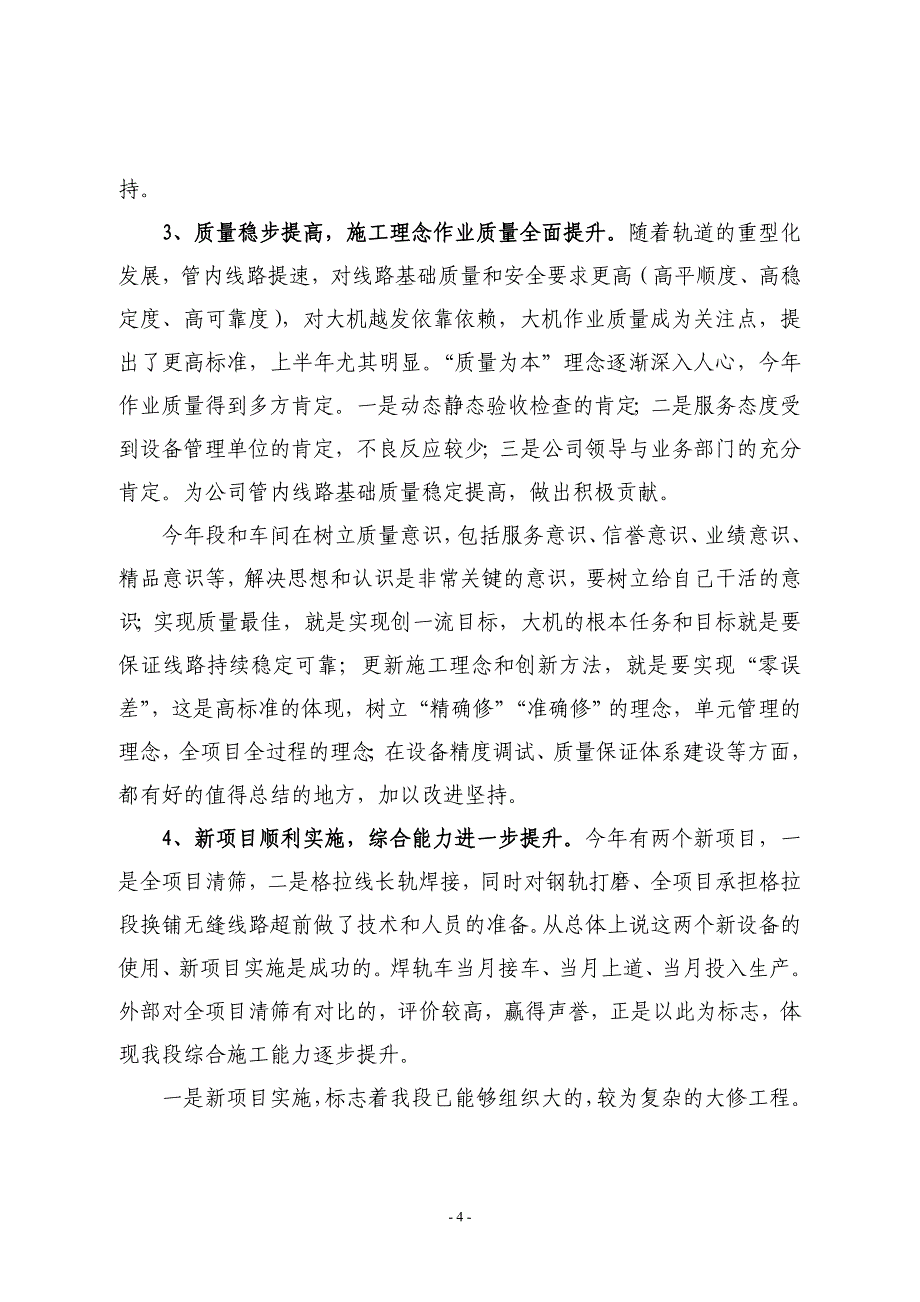 持。
3、质量稳步提高，施工理念作业质量全面提升。随着轨道的重型化
发展，管内线路提速，对线路基础质量和安全要求更高（高平顺度、高稳
定度、高可靠度），对大机越发依靠依赖，大机作业质量成为关注点，提
出了更高标准，上半年尤其明显。“质量为本”理念逐渐深入人心，今年
作业质量得到多方肯定。一是动态静态验收检查的肯定；二是服务态度受
到设备管理单位的肯定，不良反应较少；三是公司领导与业务部门的充分
肯定。为公司管内线路基础质量稳定提高，做出积极贡献。
今年段和车间在树立质量意识，包括服务意识、信誉意识、业绩意识、
精品意识等，解决思想和认识是非常关键的意识，要树立给自己干活的意
识；实现质量最佳，就是实现创一流目标，大机的根本任务和目标就是要
保证线路持续稳定可靠；更新施工理念和创新方法，就是要实现“零误
差”，这是高标准的体现，树立“精确修”“准确修”的理念，单元管理的
理念，全项目全过程的理念；在设备精度调试、质量保证体系建设等方面，
都有好的值得总结的地方，加以改进坚持。
4、新项目顺利实施，综合能力进一步提升。今年有两个新项目，一
是全项目清筛，二是格拉线长轨焊接，同时对钢轨打磨、全项目承担格拉
段换铺无缝线路超前做了技术和人员的准备。从总体上说这两个新设备的
使用、新项目实施是成功的。焊轨车当月接车、当月上道、当月投入生产。
外部对全项目清筛有对比的，评价较高，赢得声誉，正是以此为标志，体
现我段综合施工能力逐步提升。
一是新项目实施，标志着我段已能够组织大的，较为复杂的大修工程。
- 4 -